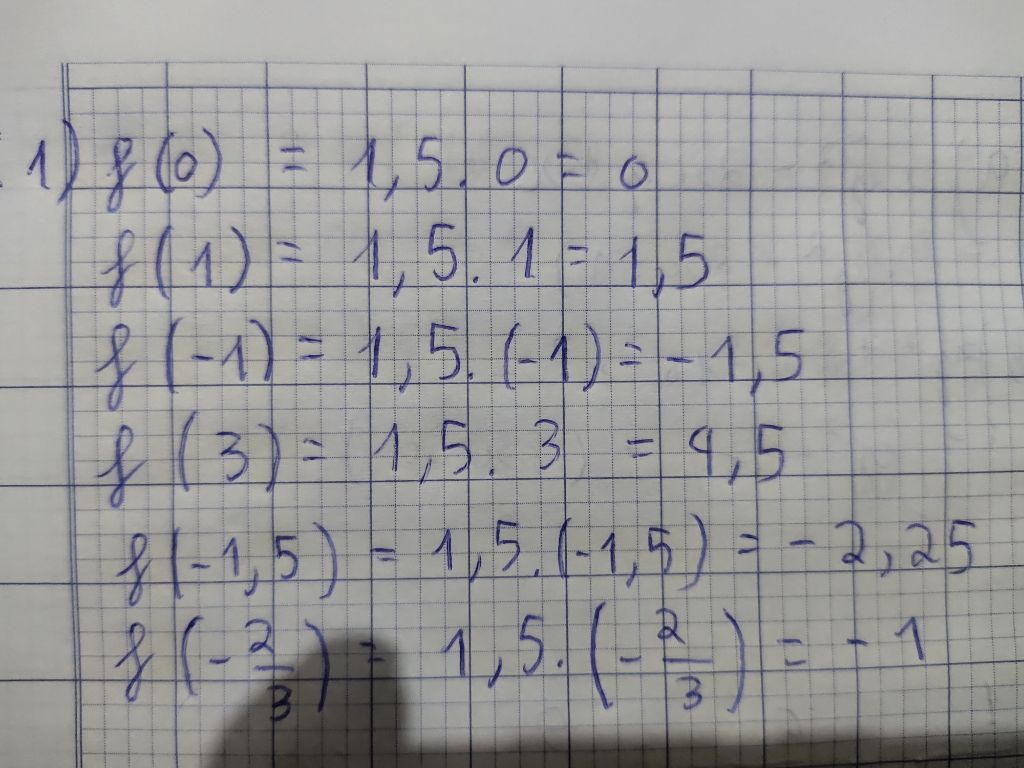 1) f(0) = 1,5. 0 = 0
f(1) = 1,5. 1 = 1,5
f(-1) = 1,5. (-1) = -1,5
f(3) = 1,5. 3 = 4,5
f(-1,5) = 1,5.(-1,5) = -2,25
f(-2/3) = 1,5.(-2/3) = -1